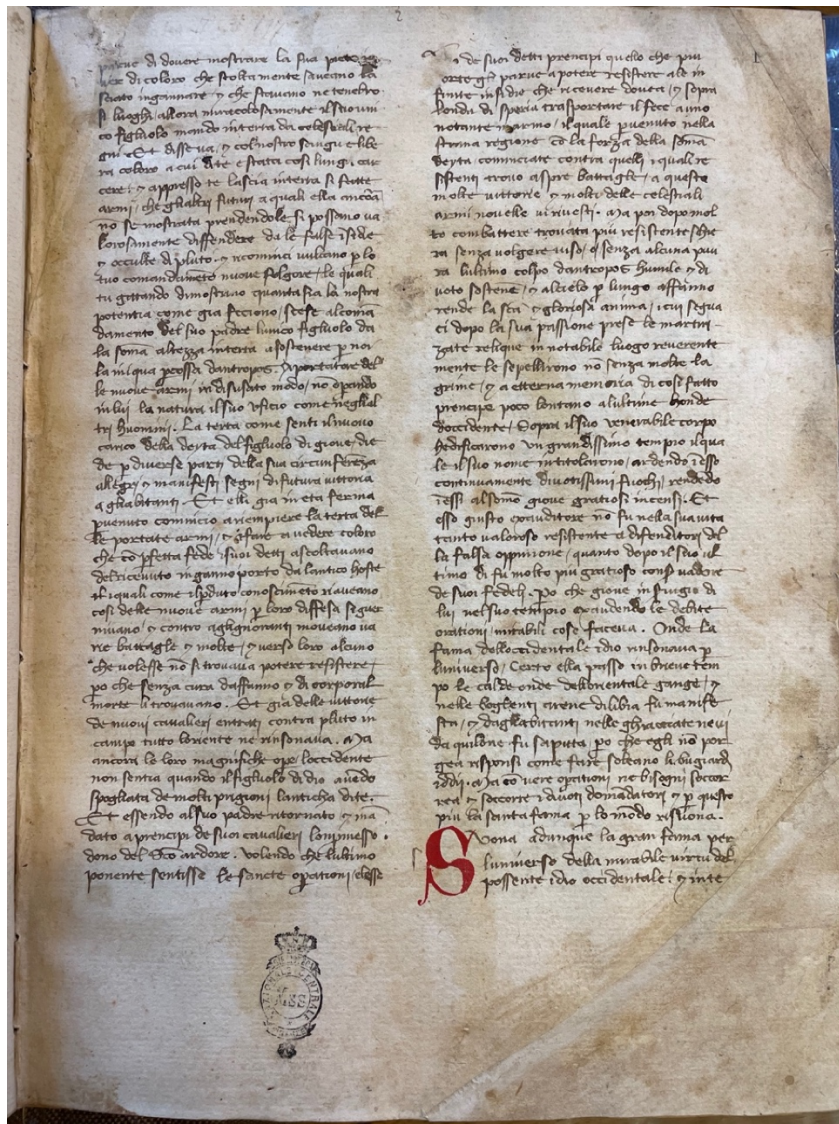 2
1
parve di dovere mostrare la sua
di coloro che stoltamente saveano la
sciato ingannare y che stavano ne tenebro
si luoghi allora miracolosamente il suo uni
co figliuolo mando in terra da celestiali re
gni Et disse va, y col nostro sangue libe
ra coloro a cui dite e stata cosi lungi car
cere: y appresso te lascia in terra si fatte
armi, che glialtri futuri a quali ella ancora
no se mostrata prendendole si possano va
lorosamente diffendere da le false insidie
y occulte di pluto. y ricominci vulcano p lo
tuo comandamēto nuove folgore, le quali
tu gittando dimostrino quanta sia la nostra
potentia come gia fecciono, scese alcomā
damento del suo padre lunico figliuolo da
la somā altezza in terra a sostenere p noi
la iniqua percossa dantropos. Aportatore del
le nuove armi in disusato modo, no opando
in lui la natura il suo uficio come neglial
tri huomini. La terra come senti il nuovo
carico della deyta del figliuolo di giove, die
de p diverse parti della sua circunferēza
allegri y manifesti segni di futura vittoria
a gliabitanti. Et elli gia in eta ferma
pvenuto comincio a riempiere la terra del
le portate armi, y a fare avedere coloro
che cō pfetta fede i suoi detti ascoltavano
del ricevuto inganno porto da lantico hoste
il iquali come il pduto conoscimēto riaveano
cosi delle nuove armi p loro diffesa si guer
nivano, y contro agl ignoranti moveano va
rie battagle y molte, y verso loro alcuno
che volesse nō si trovava potere resistere,
po che senza cura daffanno y di corporal
morte li trovavano. Et gia delle vittorie
de nuovi cavalieri entrati contra pluto in
campo tutto loriente ne rinsonava. Ma
ancora le loro magnifiche ope loccidente
non sentia quando il figliuolo di dio avēdo
spogliata de molti prigioni lanticha dite.
Et essendo al suo padre ritornato y mā
dato a principi de suoi cavalieri lo impmesso
dono del sco ardore. Volendo che lultimo
ponente sentisse le sancte opationi, elesse
di de suoi detti principi quello che piu
forte gli parve a potere resistere ale in
finite insidie che ricevere dovea, y sopra
londa di speria trasportare il fece a uno
notante marmo, il quale pvenuto nella
strana regione cō la forza della somā
deyta cominciate contra quelli i quali re
sistenti trovo aspre battagle, a queste
molte vittorie y molti delle celestiali
armi novelle vi rivesti. Ma poi dopo mol
to combattere trovata piu resistente schie
ra senza volgere viso, o senza alcuna pau
ra lultimo colpo dantropos humile y di
voto sostene, y alcielo p lungo affanno
rende la sca y gloriosa anima, i cui segua
ci dopo la sua passione prese le martiri
zate relique in notabile luogo reverente
mente le sepellirono nō senza molte la
grime, y a etterna memoria di cosi fatto
principe poco lontano alultime honde
doccidente, Sopra il suo venerabile corpo
hedificarono un grandissimo tempio il qua
le il suo nome intitolarono, ardendo i esso
continuamente divotissimi fuochi, rendēdo
i essi al somo giove gratiosi incensi. Et
esso giusto exauditore nō fu nella sua vita
tanto valoroso resistente a difenditori del
la falsa oppinione, quanto dopo il suo ul
timo di fu molto piu gratioso consvadore
de suoi fedeli. po che giove in sirvigio di
lui nel suo tempio exaudendo le debite
orationi mirabili cose faceva. Onde la
fama delloccidentale idio rinsonava p
luniverso, Certo ella passo in brieve tem
po le calde onde dellorientale gange, y
nelle boglienti arene di libia fu manife
sta, y dagliabitanti nelle ghiacciate nevi
da quilone fu saputa, po che egli nō por
gea risponsi come fare soleano li bugiardi
iddii. Ma cō vere opationi ne bisogni soccor
rea y soccorre i divoti domādatori y p questo
piu la santa fama p lo mōdo risuona.
Suona adunque la gran fama per
luniverso della mirabile virtu del
possente idio occidentale: y inte